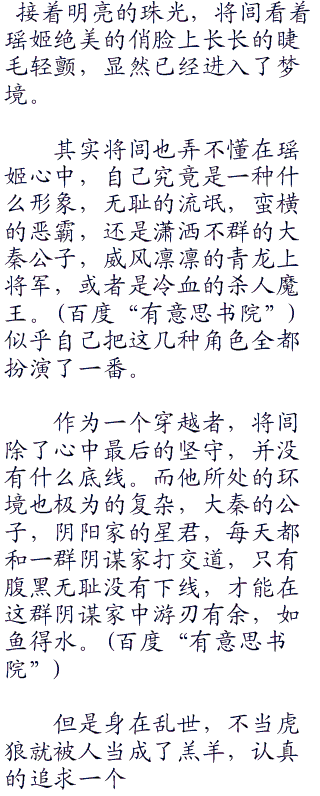 接着明亮的珠光，将闾看着
瑶姬绝美的俏脸上长长的睫
毛轻颤，显然已经进入了梦
境。
其实将闾也弄不懂在瑶
姬心中，自己究竟是一种什
么形象，无耻的流氓，蛮横
的恶霸，还是潇洒不群的大
秦公子，威风凛凛的青龙上
将军，或者是冷血的杀人魔
王。(百度“有意思书院”)
似乎自己把这几种角色全都
扮演了一番。
作为一个穿越者，将闾
除了心中最后的坚守，并没
有什么底线。而他所处的环
境也极为的复杂，大秦的公
子，阴阳家的星君，每天都
和一群阴谋家打交道，只有
腹黑无耻没有下线，才能在
这群阴谋家中游刃有余，如
鱼得水。(百度“有意思书
院”)
但是身在乱世，不当虎
狼就被人当成了羔羊，认真
的追求一个